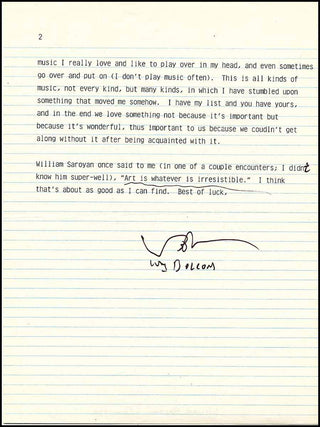 2
music I really love and like to play over in my head, and even sometimes
go over and put on (I don't play music often).  This is all kinds of
music, not every kind, but many kinds, in which I have stumbled upon
something that moved me somehow.  I have my list and you have yours,
and in the end we love something not because it's important but
because it's wonderful, thus important to us because we coudln't get
along without it after being acquainted with it.
William Saroyan once said to me (in one of a couple encounters; I didn't
know him super-well), "Art is whatever is irresistible."  I think
that's about as good as I can find.  Best of luck,
Wm Bolcom